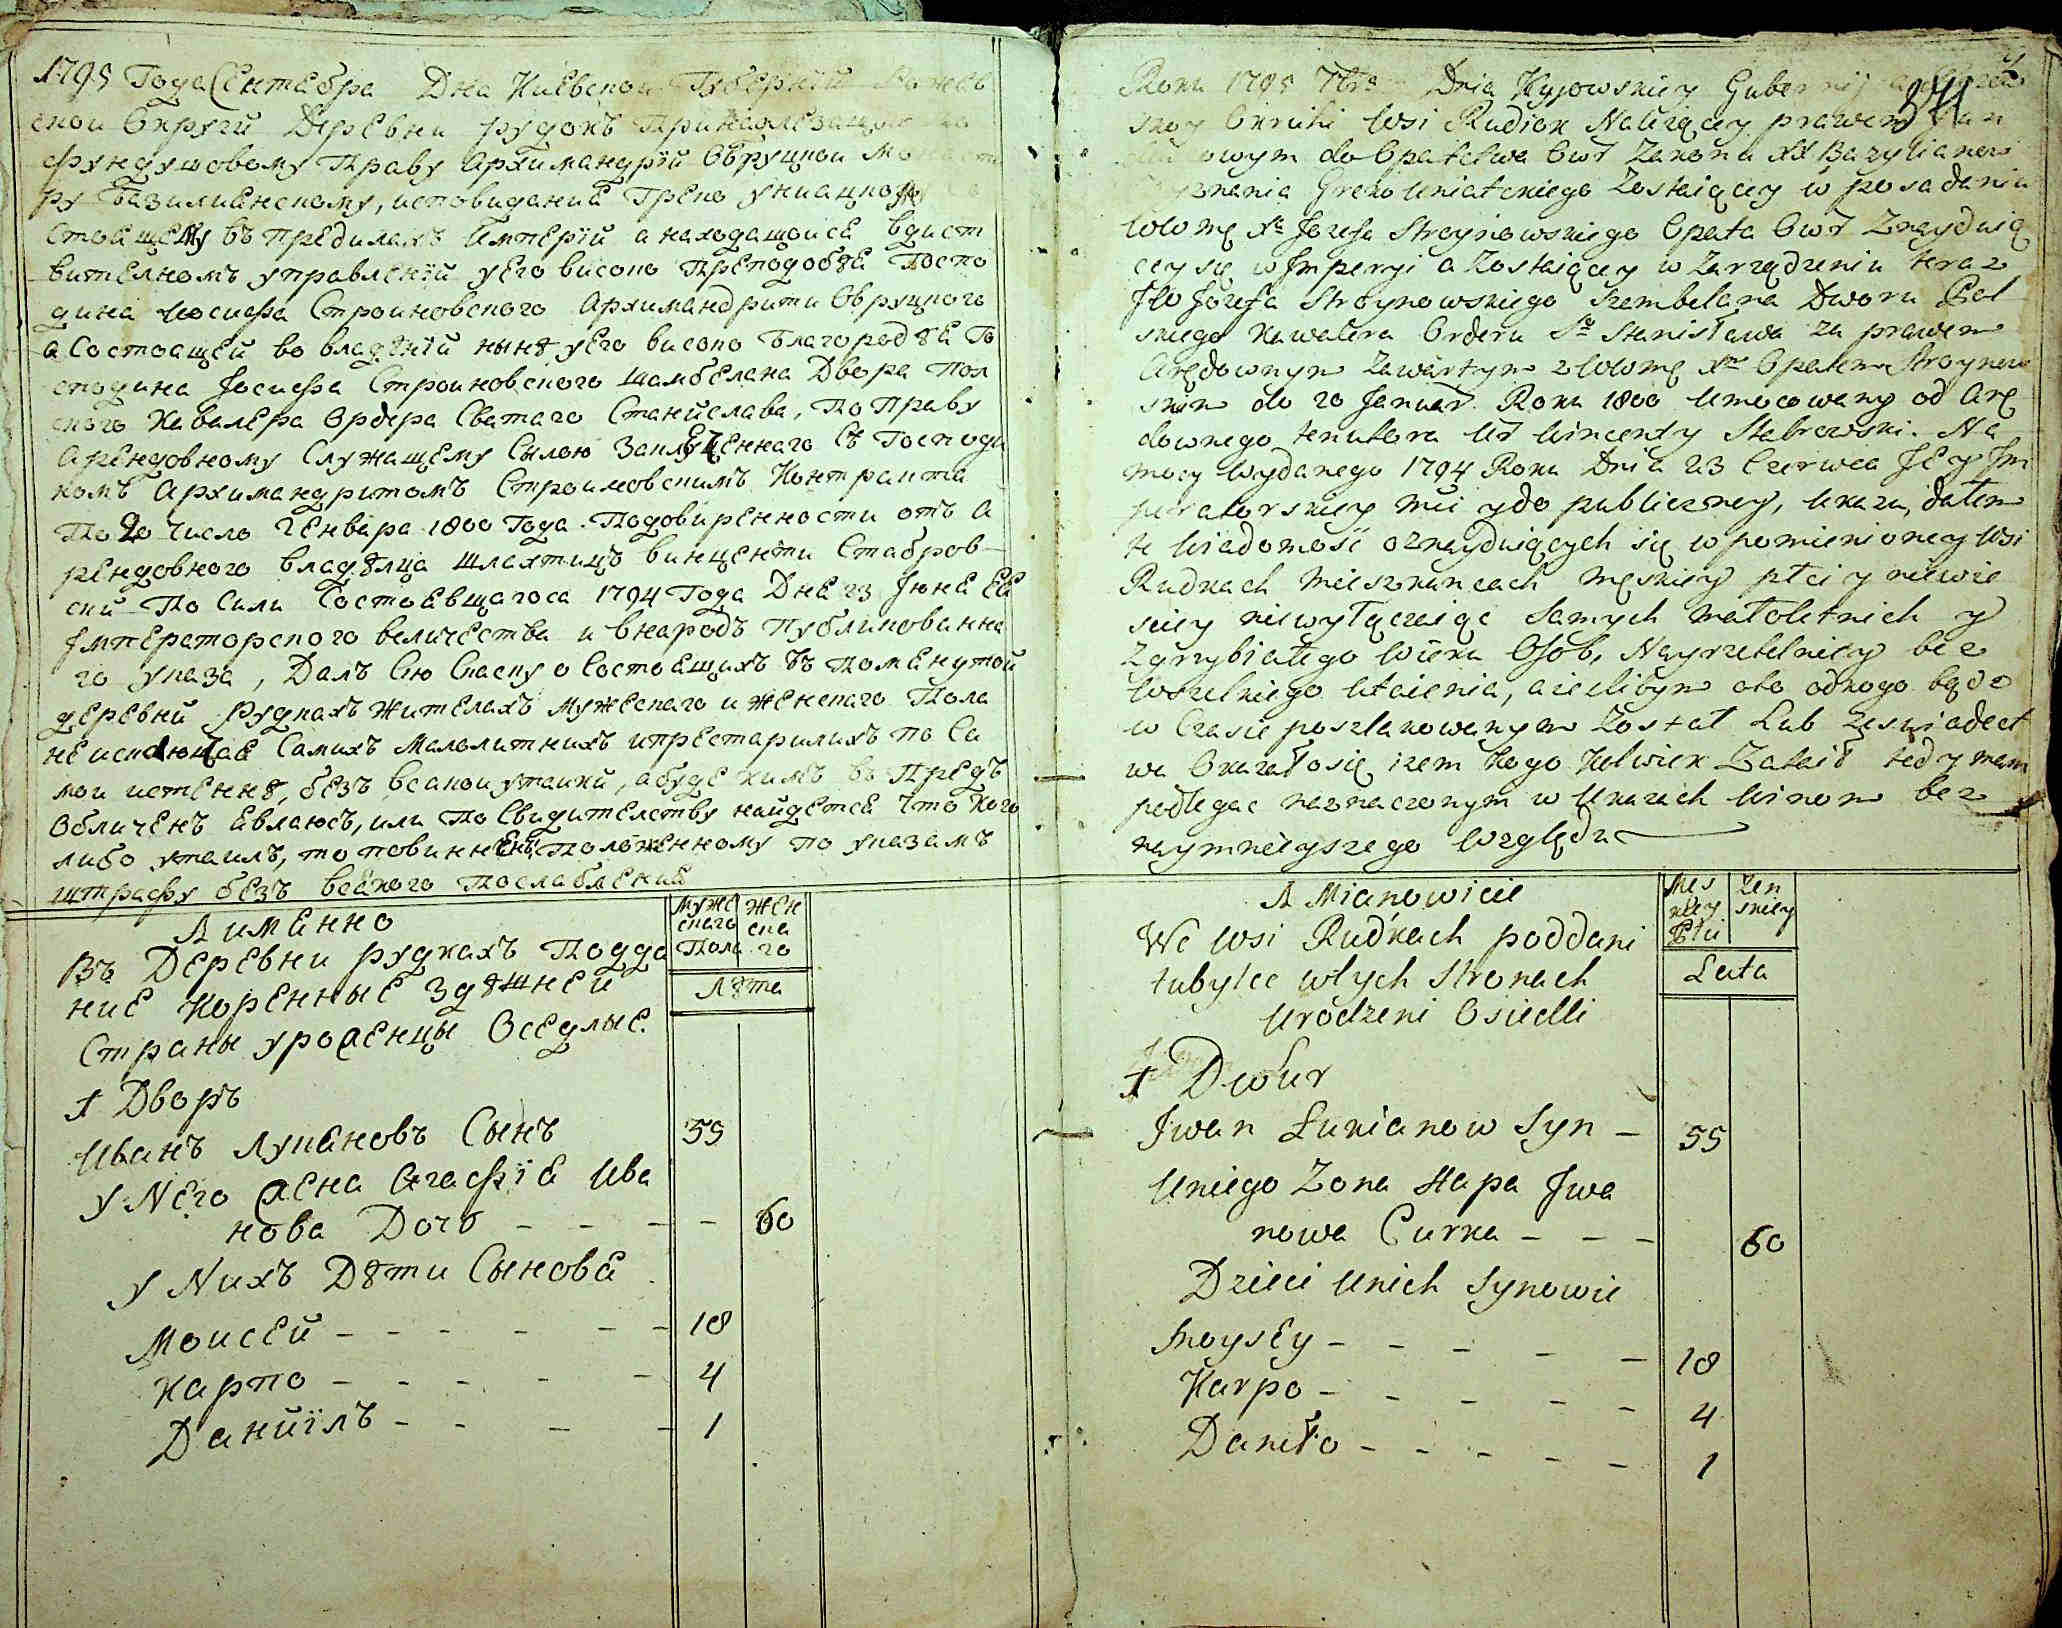 1795 Года Сентебра Дна Киевской Губернии
ской Округи Деревни рудокъ Принадлежащой
Фундушовому Праву Архимандрїи Овруцкой
ру Базилианскому, исповиданиа Греко униацкого
Стоащему въ предилахъ Империи а находащойса вдист
вителномъ управленїи уего високо Преподобѣа Госпо
дина Иосифа Строиновского Архимандрити Овруцкого
а Состоащей во владѣнїи нынѣ уего високо Благородѣа Го
сподина Іосифа Строиновского Шамбелана Двора Пол
ского Кавалера Ордера Сватаго Станислава, По Праву
Арендовному Служащему Сылою Заключеннаго Съ Господи
номъ Архимандритомъ Строиновскимъ Контракта
По 20 число Генвара 1800 Года. Подовиренности отъ А
рендовного владѣлца шлахтицъ винцентїи Стабров-
ски По Сили Состоавшагоса 1794 Года Дна 23 Іюна Еа
Імператорского величества и внародъ Публикованна
го указа, Далъ Сю Скаску о Состоащихъ въ Поманутой
деревни Рудкахъ жителахъ мужеского и женского Пола
не исключаа Самихъ малолитнихъ ипрестарилихъ по Са
мой истеннѣ, безъ всакой утайки, абуде кимъ въ Предъ
Обличенъ авлаюсъ, или По Свидителству найдетса что кого
либо утаилъ, то повиненъ Положенному по указамъ
штрафу безъ всакого Послаблениа
А именно
Муже
ского
Пола
Жен
ска
го
Въ Деревни рудкахъ Подда
ние Коренные Здѣшней
Страны уроженцы Оседлые.
Лѣта
1 Дворъ
Иванъ Лукановъ Сынъ 55
у Него жена Агафїа Ива
нова Дочь - - - - 60
у Нихъ Дѣти Сыновѣ
Моисей - - - - - - 18
Карпо - - - - - 4
Даниїлъ - - - - 1
Roku 1795 7bra Dnia Kyjowskiey Gubernij
skoy Okruhi Wsi Rudiok Należącey prawem
owym do Opatctwa Owr Zakonu XX Bazylianow
Wyznania Greko Uniatckiego Zostaiącey w posadaniu
WWmę Xa Jozefa Stroynowskiego Opata Owr Znayduią
cey się w Imperyi a Zostaiącey w Zarządzeniu teraz
JW Jozefa Stroynowskiego Szembelana Dworu Pol
skiego Kawalera Orderu So Stanisława za prawem
Arędownym Zawartym z WWmę Xm Opatem Stroynow
skim do 20 Januar. Roku 1800 Umocowany od Arę
downego tenutora Ur Wincenty Stabrowski. Na
mocy Wydanego 1794 Roku Dnia 23 Czerwca Jey Im
peratorskiey Mci ydo publiczney, Ukazu, dałem
te Wiadomość oznayduiących się w pomienioney Wsi
Rudkach Mieszkancach męskiey płci y niewie
sciey niewyłączaiąc Samych małoletnich y
Zgrzybiałego Wieku Osob, Nayrzetelniey bez
Wszelkiego Utaienia, a ieslibym oto odkogo będz
w Czasie poszlakowanym Został Lub Zeswiadect
wa Okazałosię iżem kogo kolwiek Zataił tedy mam
podlegac naznaczonym w Ukazach Winom bez
naymnieyszego Względu
A Mianowicie
Mes
kiey
Płci
Zen
skiey
We Wsi Rudkach poddani
tubylce wtych Stronach
Urodzeni Osiedli
Lata
1 Dwur
Jwan Łukianow Syn - 55
Uniego Zona Hapa Jwa
nowa Curka - - - 60
Dzieci Unich Synowie
Moysey - - - - - 18
Karpo - - - - - 4
Daniło - - - - - 1